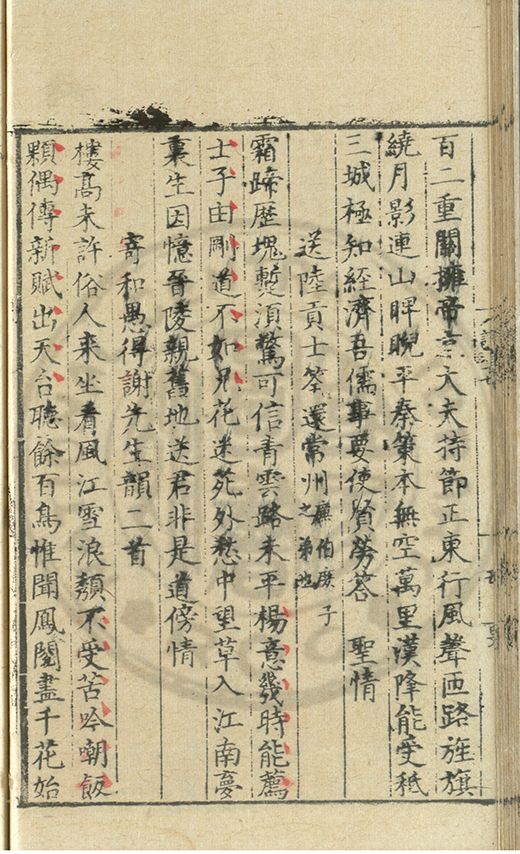 百二重關擁帝京大夫持節正東行風聲匝路旌旗
繞月影連山睥睨平秦策本無空萬里漢降能受秪
三城極知經濟吾儒事要使賢勞答 聖情
送陸貢士筌還常州 廉伯庶子之弟也
霜蹄歷塊蹔須驚可信青雲路未平楊意幾時能薦
士子由剛道不如兄花迷苑外愁中望草入江南夢
裏生因憶晉陵親舊地送君非是道傍情
寄和愚得謝先生韻二首
樓高未許俗人來坐看風江雪浪頹不受苦吟嘲飯
顆偶傳新賦出天台聽餘百鳥惟聞鳳閱盡千花始